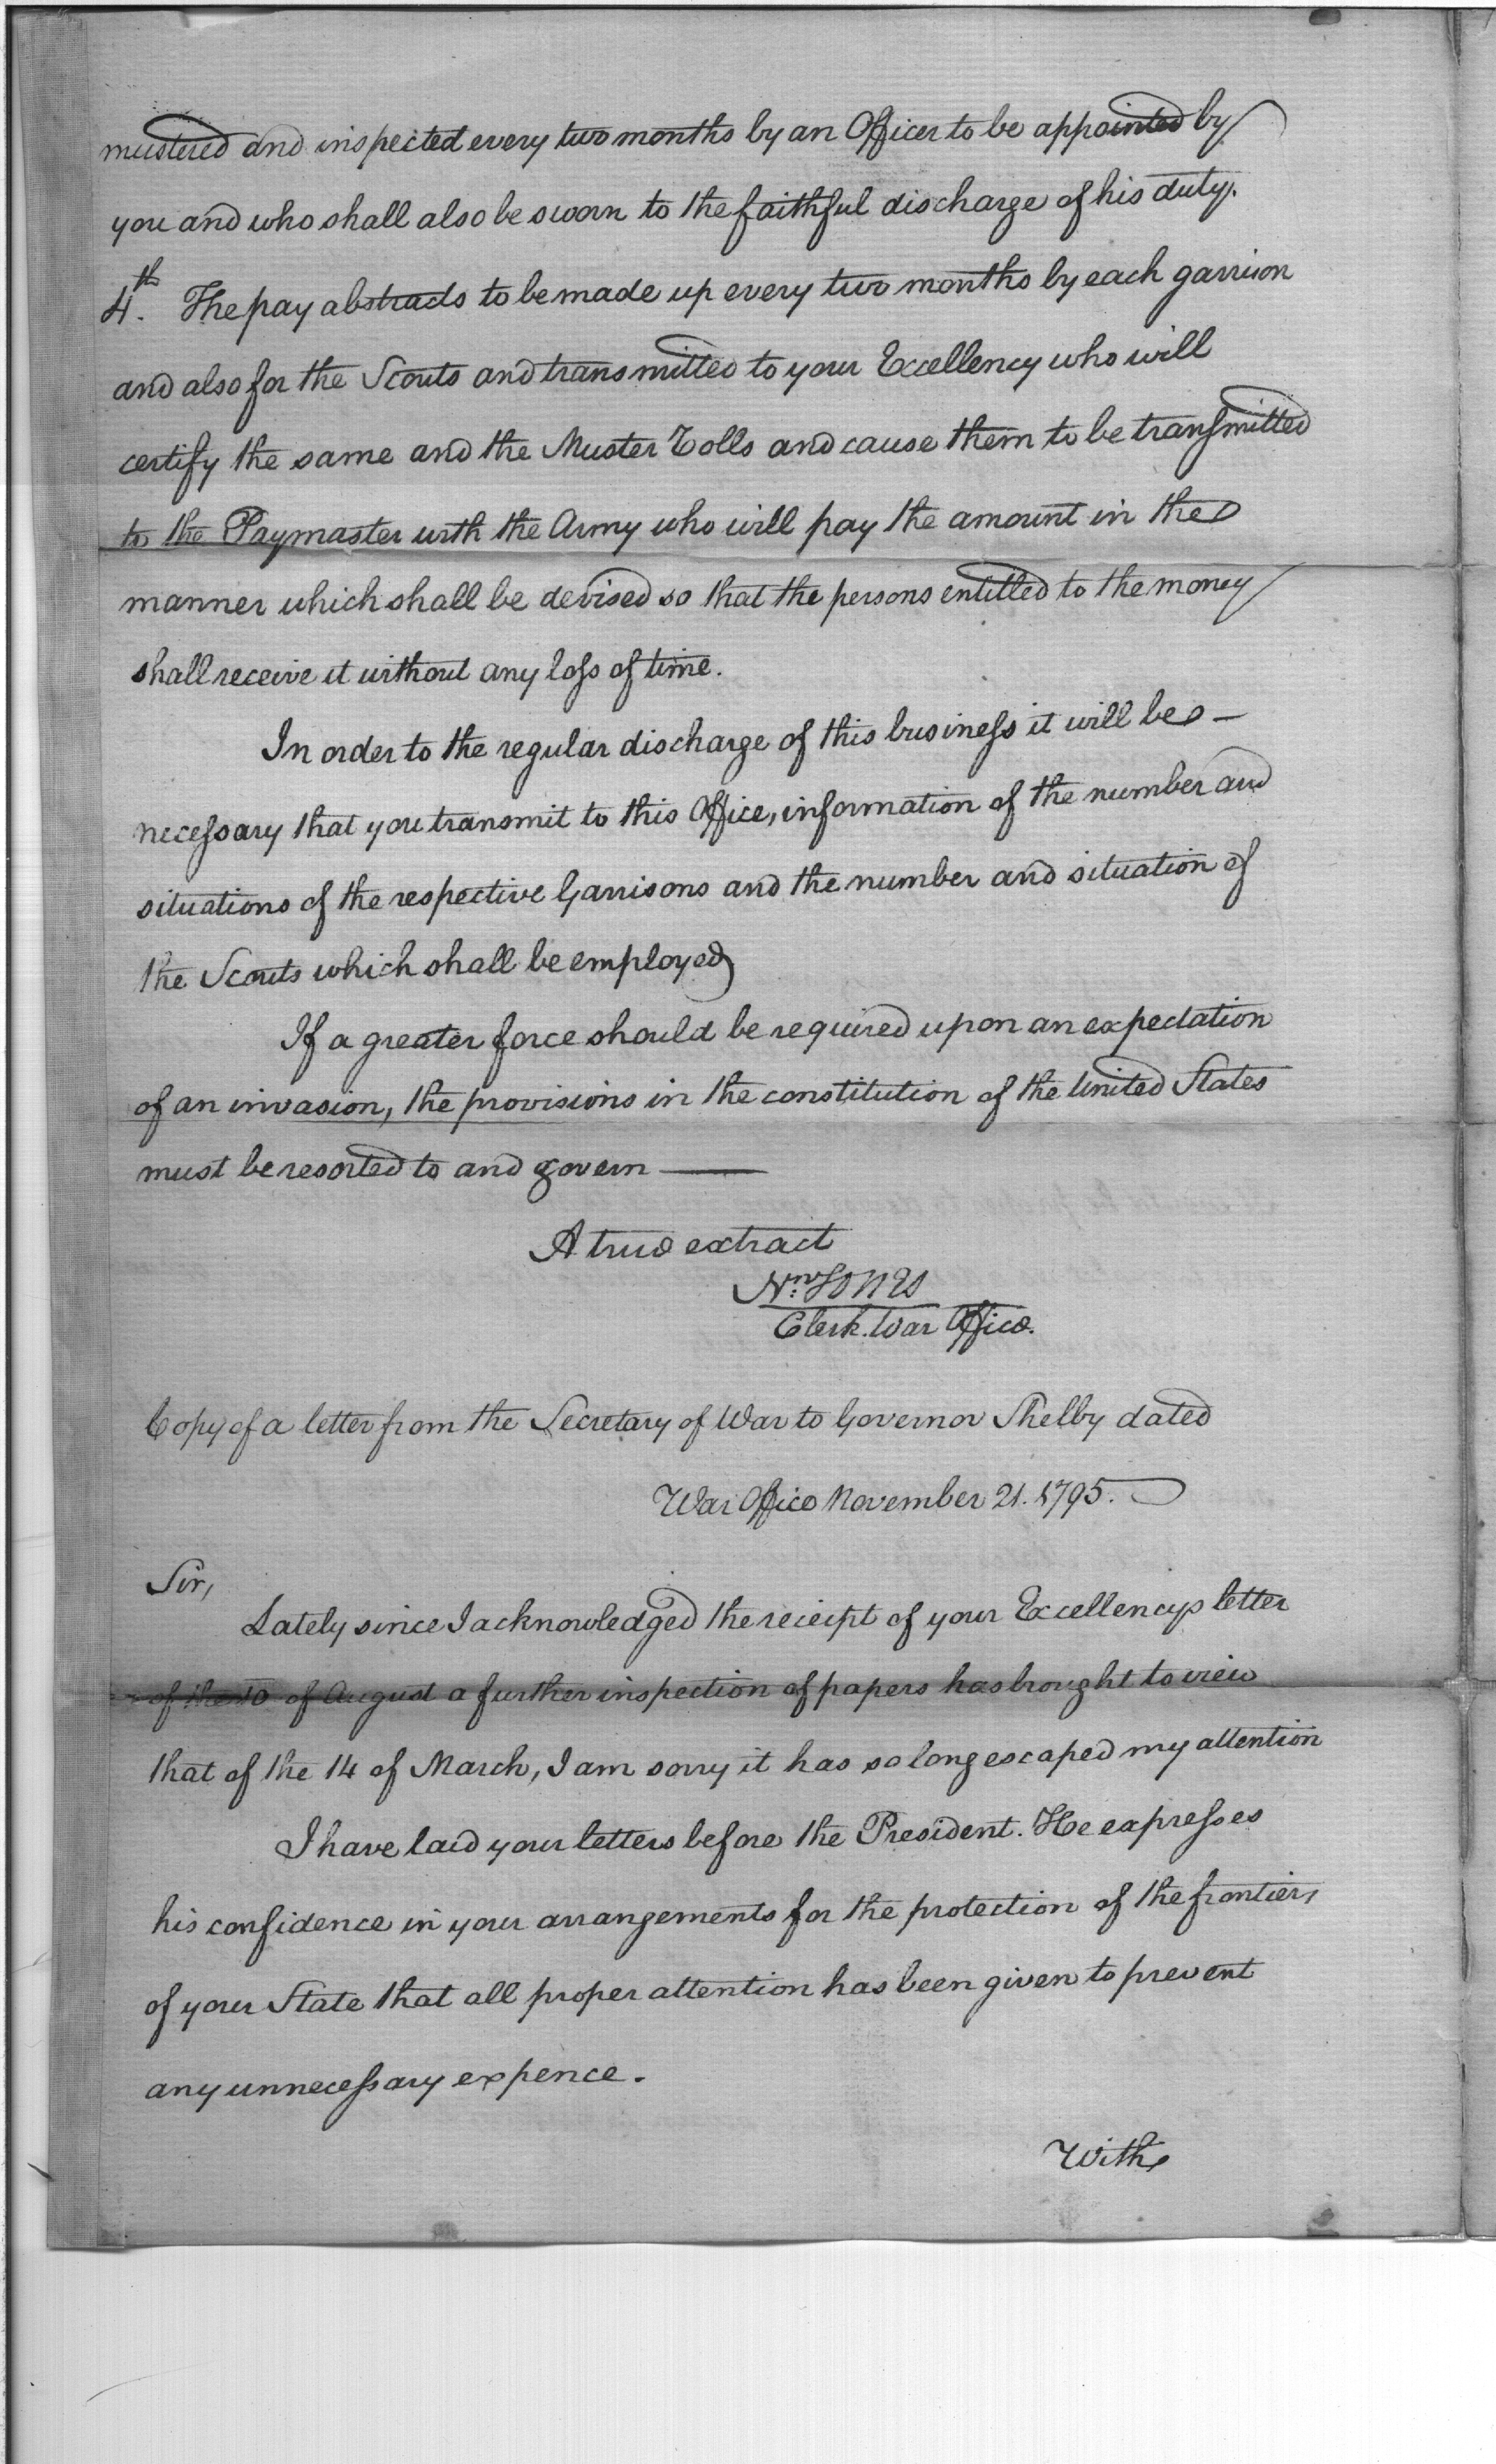 mustered and inspected every two months by an Officer to be appointed by
you and who shall also be sworn to the faithful discharge of his duty.
4th. The pay abstracts to be made up every two months by each garrison
and also for the Scouts and transmitted to your Excellency who will
certify the same and the Muster Rolls and cause them to be transmitted
to the Paymaster with the Army who will pay the amount in the
manner which shall be devised so that the persons entitled to the money
shall receive it without any loss of time.
In order to the regular discharge of this business it will be —
necessary that you transmit to this Office, information of the number and
situations of the respective Garrisons and the number and situation of
the Scouts which shall be employed
If a greater force should be required upon an expectation
of an invasion, the provisions in the constitution of the United States
must be resorted to and govern —
A true extract
Nn. Jones
Clerk. War Office.
Copy of a letter from the Secretary of War to Governor Shelby dated
War Office November 21. 1795.
Sir,
Lately since I acknowledged the receipt of your Excellencys letter
of the 10 of August a further inspection of papers has brought to view
that of the 14 of March, I am sorry it has so long escaped my attention
I have laid your letters before the President. He expresses
his confidence in your arrangements for the protection of the frontiers
of your State that all proper attention has been given to prevent
any unnecessary expence.
With